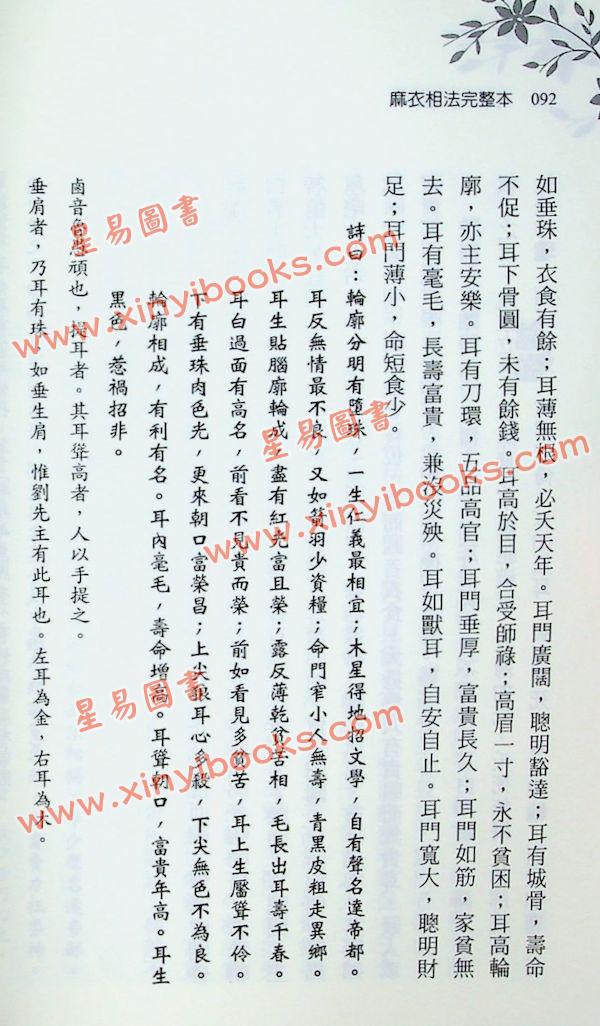 麻衣相法完整本 092
如垂珠，衣食有餘；耳薄無根，必夭天年。耳門廣闊，聰明豁達；耳有城骨，壽命
不促；耳下骨圓，未有餘錢。耳高於目，合受師祿；高眉一寸，永不貧困；耳高輪
廓，亦主安樂。耳有刀環，五品高官；耳門垂厚，富貴長久；耳門如筋，家貧無
去。耳有毫毛，長壽富貴，兼沒災殃。耳如獸耳，自安自止。耳門寬大，聰明財
足；耳門薄小，命短食少。
詩曰：輪廓分明有墮珠，一生仁義最相宜；木星得地招文學，自有聲名達帝都。
耳反無情最不良，又如箭羽少資糧；命門窄小人無壽，青黑皮粗走異鄉。
耳生貼腦廓輪成，盡有紅光富且榮；露反薄乾貧苦相，毛長出耳壽千春。
耳白過面有高名，前看不見貴而榮；前如看見多貧苦，耳上生靨聳不伶。
下有垂珠肉色光，更來朝口富榮昌；上尖狼耳心多殺，下尖無色不為良。
輪廓相成，有利有名。耳內毫毛，壽命增高。耳聳朝口，富貴年高。耳生
黑色，惹禍招非。
鹵音魯愚頑也，提耳者。其耳聳高者，人以手提之。
垂肩者，乃耳有珠，如垂生肩，惟劉先主有此耳也。左耳為金，右耳為木。
星易圖書
www.xinyibooks.com
星易圖書
www.xinyibooks.com
星易圖書
www.xinyibooks.com